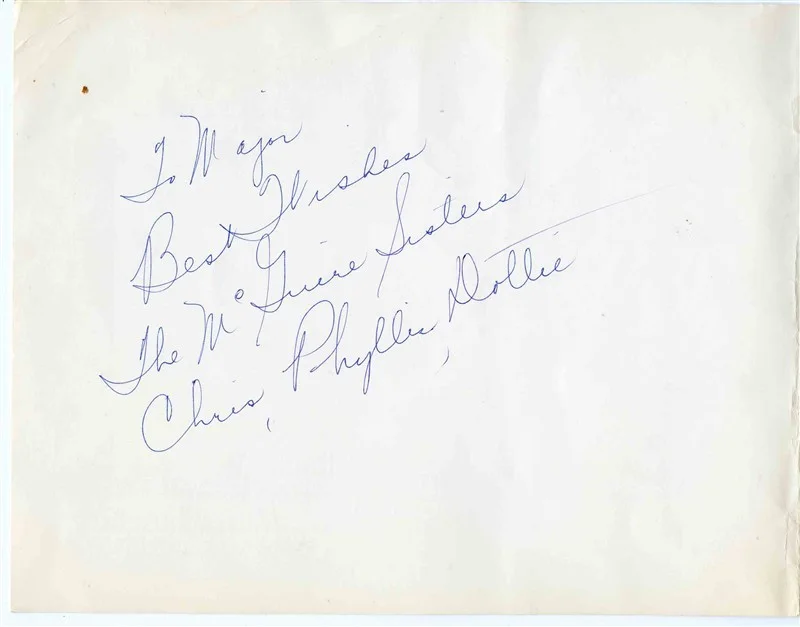 To Major
Best Wishes
The McGuire Sisters
Chris, Phyllis, Dottie